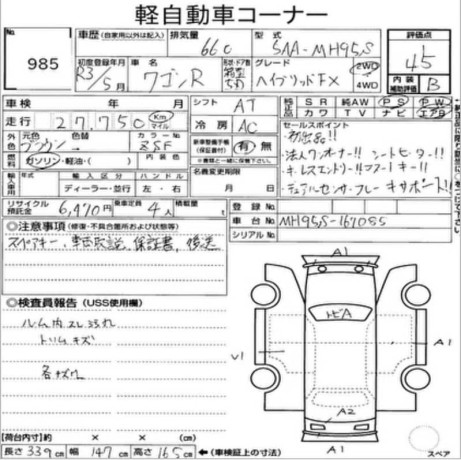 軽自動車コーナー
No.
985
車歴 (自家用以外は記入)
排気量 660
型式 5AA-MH95S
評価点 4.5
初度登録年月 R3/5月
車名 ワゴンR
ドア形状
グレード ハイブリッドFX
2WD
4WD
内装補助評価 B
車検 年 月
シフト AT
純正品 SR 純AW PS PW
カワ TV ナビ エアB
走行 27,750 Km マイル
冷房 AC
セールスポイント
外色 元色 色替 カラーNo.
ブラウン
新車整備手帳(保証書付) 有 無
・法人ワンオーナー!! シートヒーター!!
燃料 ガソリン・軽油・( )
内装色
・キーレスエントリー
名義変更期限
月 日
・デュアルセンサーブレーキサポート!!
輸入車 年式 輸入区分 ハンドル
ディーラー・並行 左・右
リサイクル預託金 6,470円
乗車定員 4人
積載量
登録No.
車台No. MH95S-167085
シリアルNo.
◎注意事項 (修復・不具合箇所および状態等)
スペアキー、車両取説、保証書、後送
◎検査員報告 (USS使用欄)
ルーム内スレ汚れ
トリムキズ
A1
トビA
V1
A1
A2
A1
スペア
【荷台内寸】 × ×
長さ 339 cm 幅 147 cm 高さ 165 cm
←(車検証上の寸法)